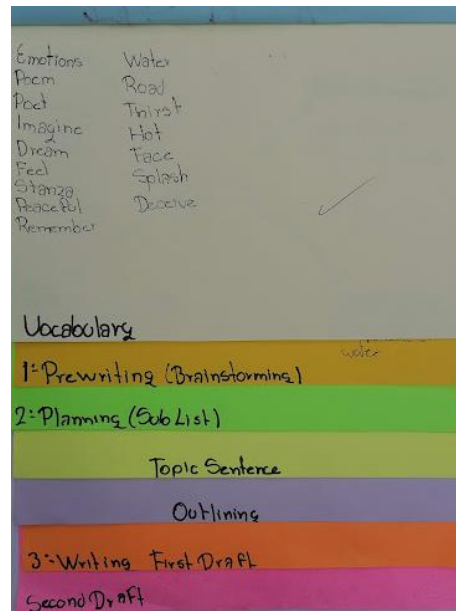 Emotions
Poem
Poet
Imagine
Dream
Feel
Stanza
Peaceful
Remember
Water
Road
Thirst
Hot
Face
Splash
Deceive
Vocabulary
water
1:-Prewriting (Brainstorming)
2:-Planning (Sub List)
Topic Sentence
Outlining
3:-Writing First Draft
Second Draft